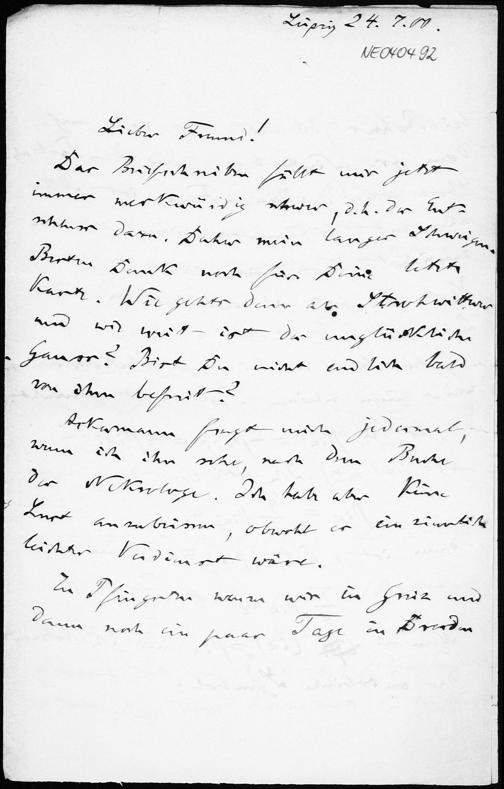 Leipzig 24. 7. 00.
NE040492
Lieber Freund!
Das Briefschreiben fällt mir jetzt
immer merkwürdig schwer, d. h. der Ent
schluss dazu. Daher mein langes Schweigen.
Besten Dank noch für Deine letzte
Karte. Wie gehts denn als Strohwittwer
und wie weit ist der unglückliche
Gauss? Bist Du nicht endlich bald
von ihm befreit?
Ackermann fragt mich jedesmal,
wenn ich ihn sehe, nach dem Buche
der Nekrologe. Ich habe aber keine
Lust anzubeissen, obwohl es ein ziemlich
leichter Verdienst wäre.
Zu Pfingsten waren wir in Greiz und
dann noch ein paar Tage in Dresden